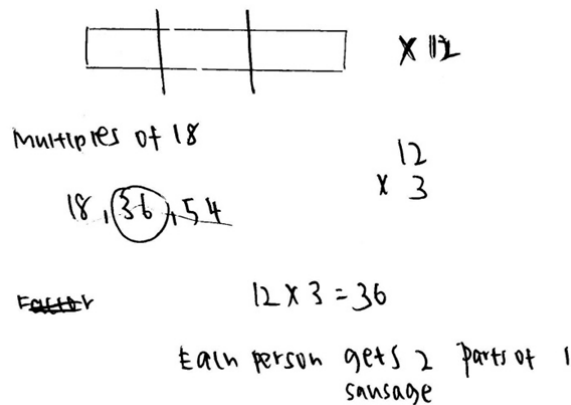 x 12
Multiples of 18
12
x 3
18, 36, 54
12 x 3 = 36
Each person gets 2 parts of 1
sausage